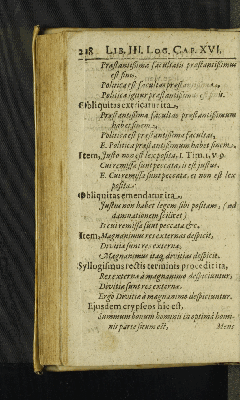 218 LIB. III. LOG. CAP. XVI.
Præstantissimæ facultatis præstantissimus
est finis.
Politica est facultas præstantissima.
Politica igitur præstantissimus est finis.
Obliquitas extricatur ita.
Præstantissima facultas præstantissimum
habet finem.
Politica est præstantissima facultas,
E. Politica præstantissimum habet finem.
Item, Justo non est lex posita. 1. Tim. 1, v. 9.
Cui remissa sunt peccata, is est justus.
E. Cui remissa sunt peccata, ei non est lex
posita.
Obliquitas emendatur ita.
Justus non habet legem sibi positam, (ad
damnationem scilicet)
Item remissa sunt peccata &c.
Item, Magnanimus res externas despicit,
Divitiæ sunt res externæ.
Magnanimus itaq; divitias despicit.
Syllogismus rectis terminis procedit ita,
Res externæ à magnanimo despiciuntur.
Divitiæ sunt res externæ.
Ergo Divitiæ à magnanimo despiciuntur.
Ejusdem crypseos hic est,
Summum bonum hominis in optima homi-
nis parte situm est,
Mens